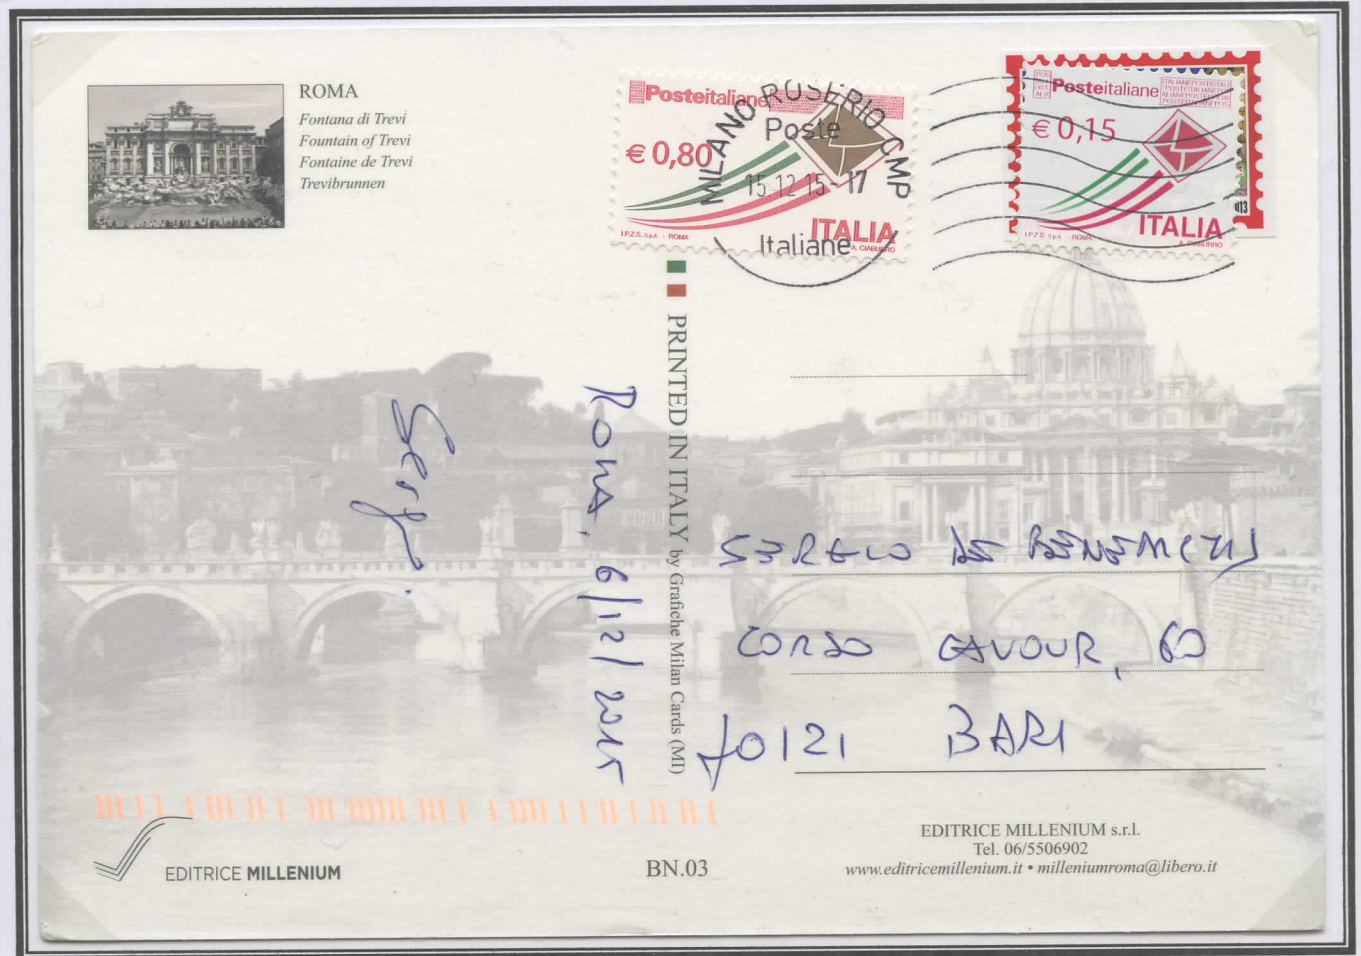 ROMA
Fontana di Trevi
Fountain of Trevi
Fontaine de Trevi
Trevibrunnen
Posteitaliane
€ 0,80
ITALIA
I.P.Z.S. S.p.A. - ROMA
A. CIABURRO
MILANO ROSERIO CMP
Poste
15.12.15-17
Italiane
Posteitaliane
€ 0,15
ITALIA
I.P.Z.S. S.p.A. ROMA
A. CIABURRO
PRINTED IN ITALY by Grafiche Milan Cards (MI)
Roma, 6/12/2015
SERGIO DE BENEDICTIS
CORSO CAVOUR, 60
70121 BARI
EDITRICE MILLENIUM
BN.03
EDITRICE MILLENIUM s.r.l.
Tel. 06/5506902
www.editricemillenium.it • milleniumroma@libero.it